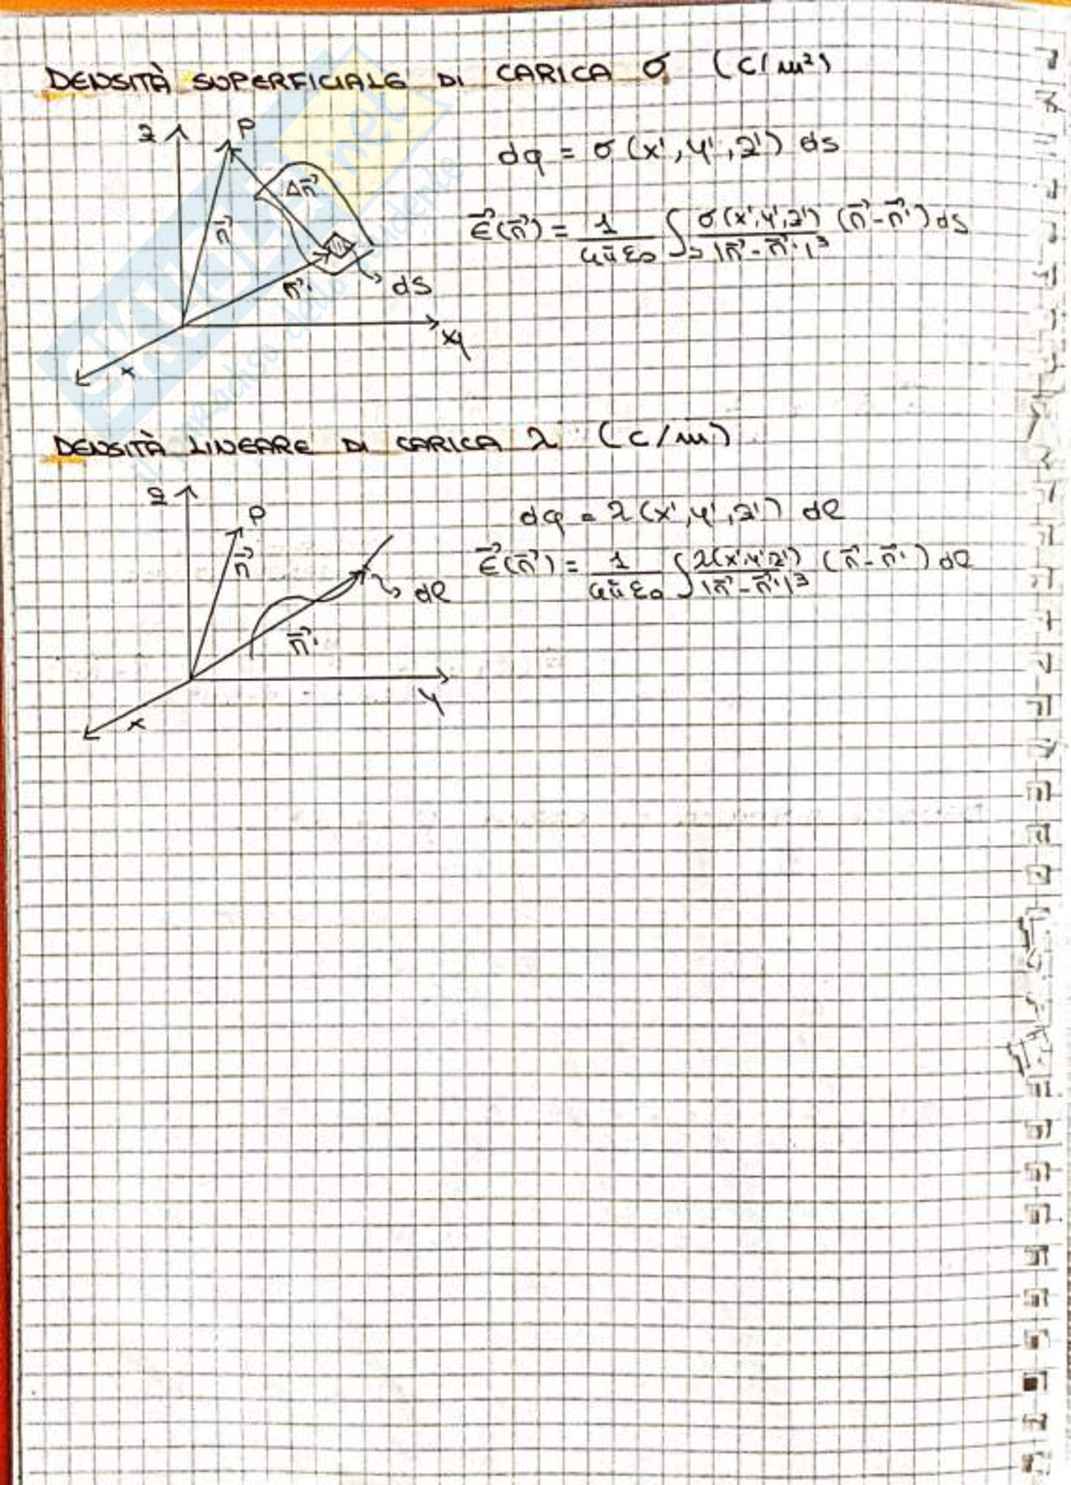 DENSITÀ SUPERFICIALE DI CARICA σ (C/m²)
z P
Δr⃗
r⃗
r⃗'
dS
x y
dq = σ(x', y', z') ds
E⃗(r⃗) = 1/4πε₀ ∫s σ(x',y',z')/|r⃗-r⃗'|³ (r⃗-r⃗') ds
DENSITÀ LINEARE DI CARICA λ (C/m)
z P
r⃗
dl
r⃗'
x y
dq = λ(x', y', z') dl
E⃗(r⃗) = 1/4πε₀ ∫ λ(x',y',z')/|r⃗-r⃗'|³ (r⃗-r⃗') dl